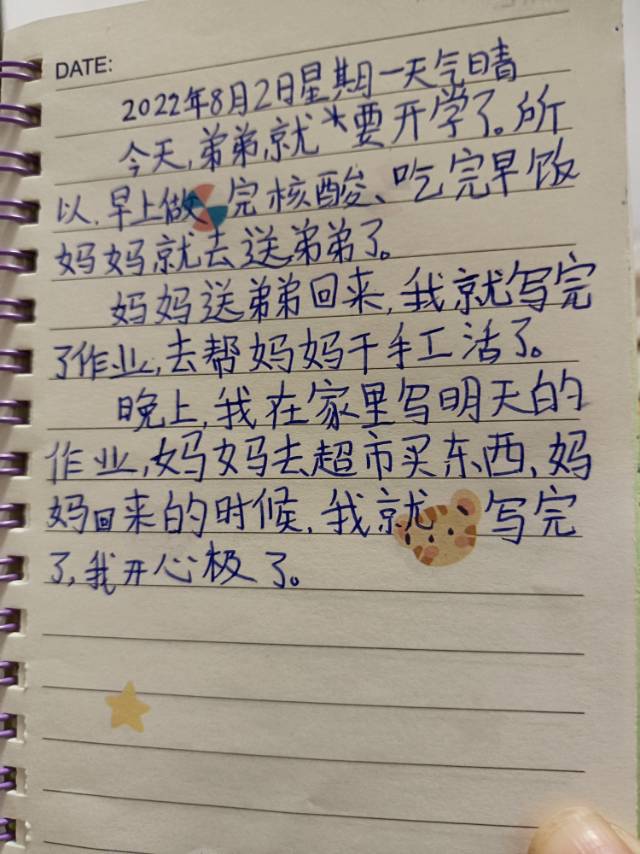 DATE:
2022年8月2日星期一天气晴
今天,弟弟,就*要开学了。所
以、早上做完核酸、吃完早饭
妈妈就去送弟弟了。
妈妈送弟弟回来,我就写完
了作业,去帮妈妈干手工活了。
晚上,我在家里写明天的
作业,妈妈去超市买东西、妈
妈回来的时候,我就、写完
了,我开心极了。